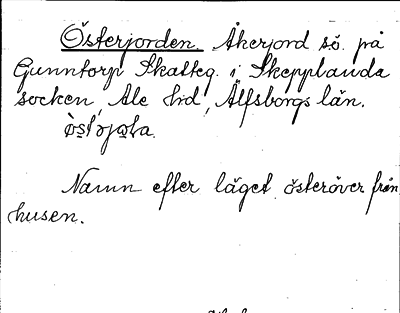 Österjorden. Åkerjord sö. på
Gunntorp Skatteg. i Skepplanda
socken, Ale hd, Älfsborgs län.
Namn efter läget österöver från
husen.